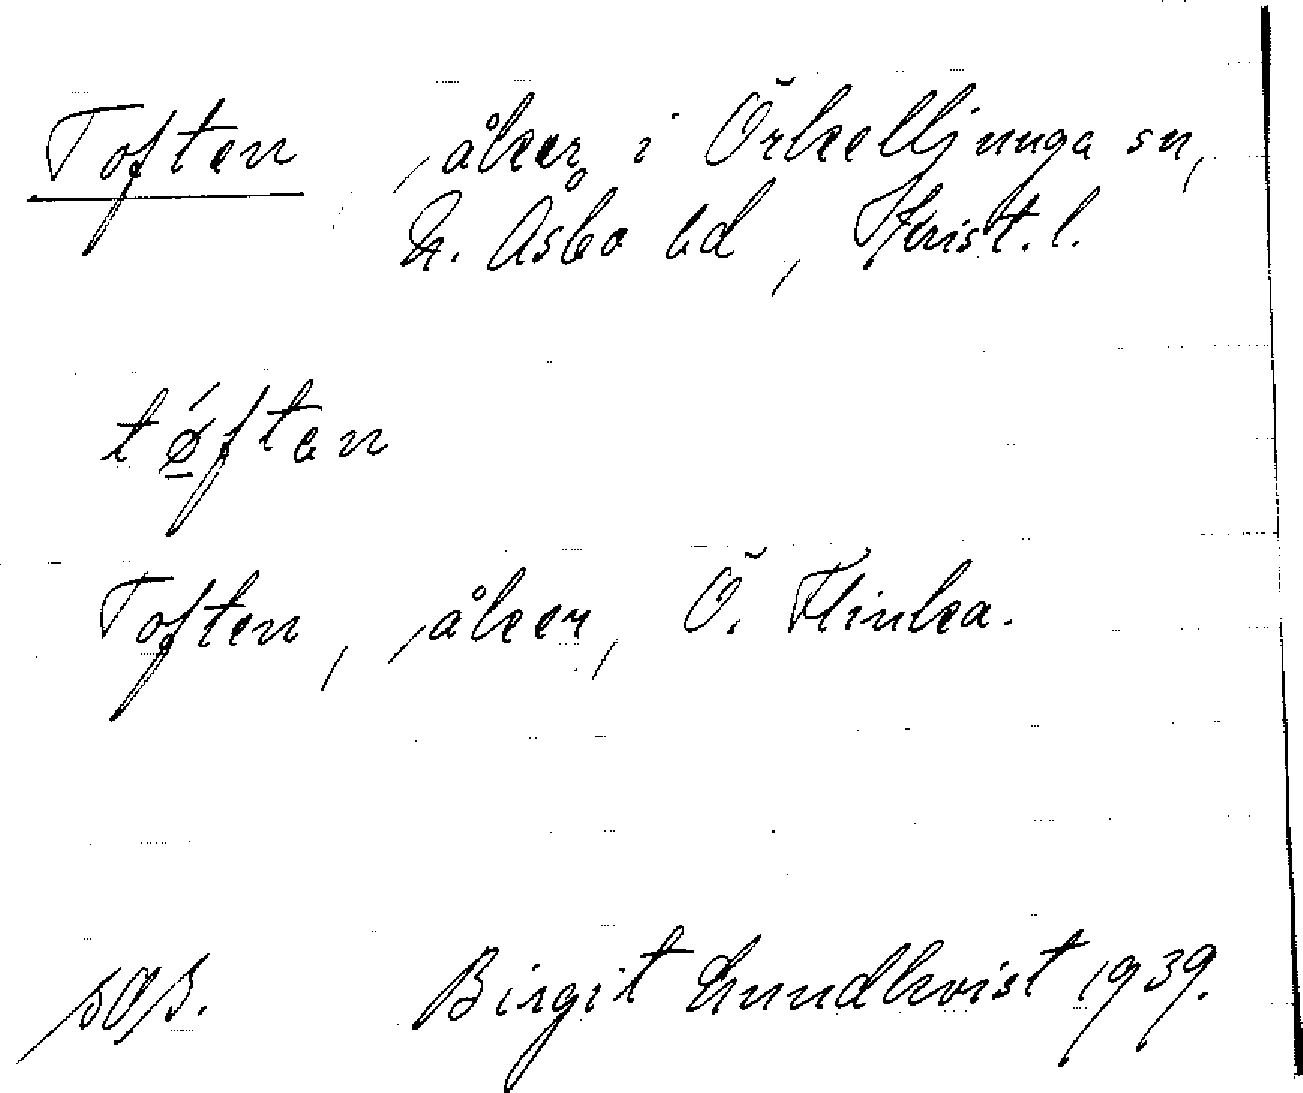 Toften, åker i Örkelljunga sn,
N. Åsbo hd, Krist. l.
tǿften
Toften, åker, Ö. Flinka.
Birgit Lundkvist 1939.